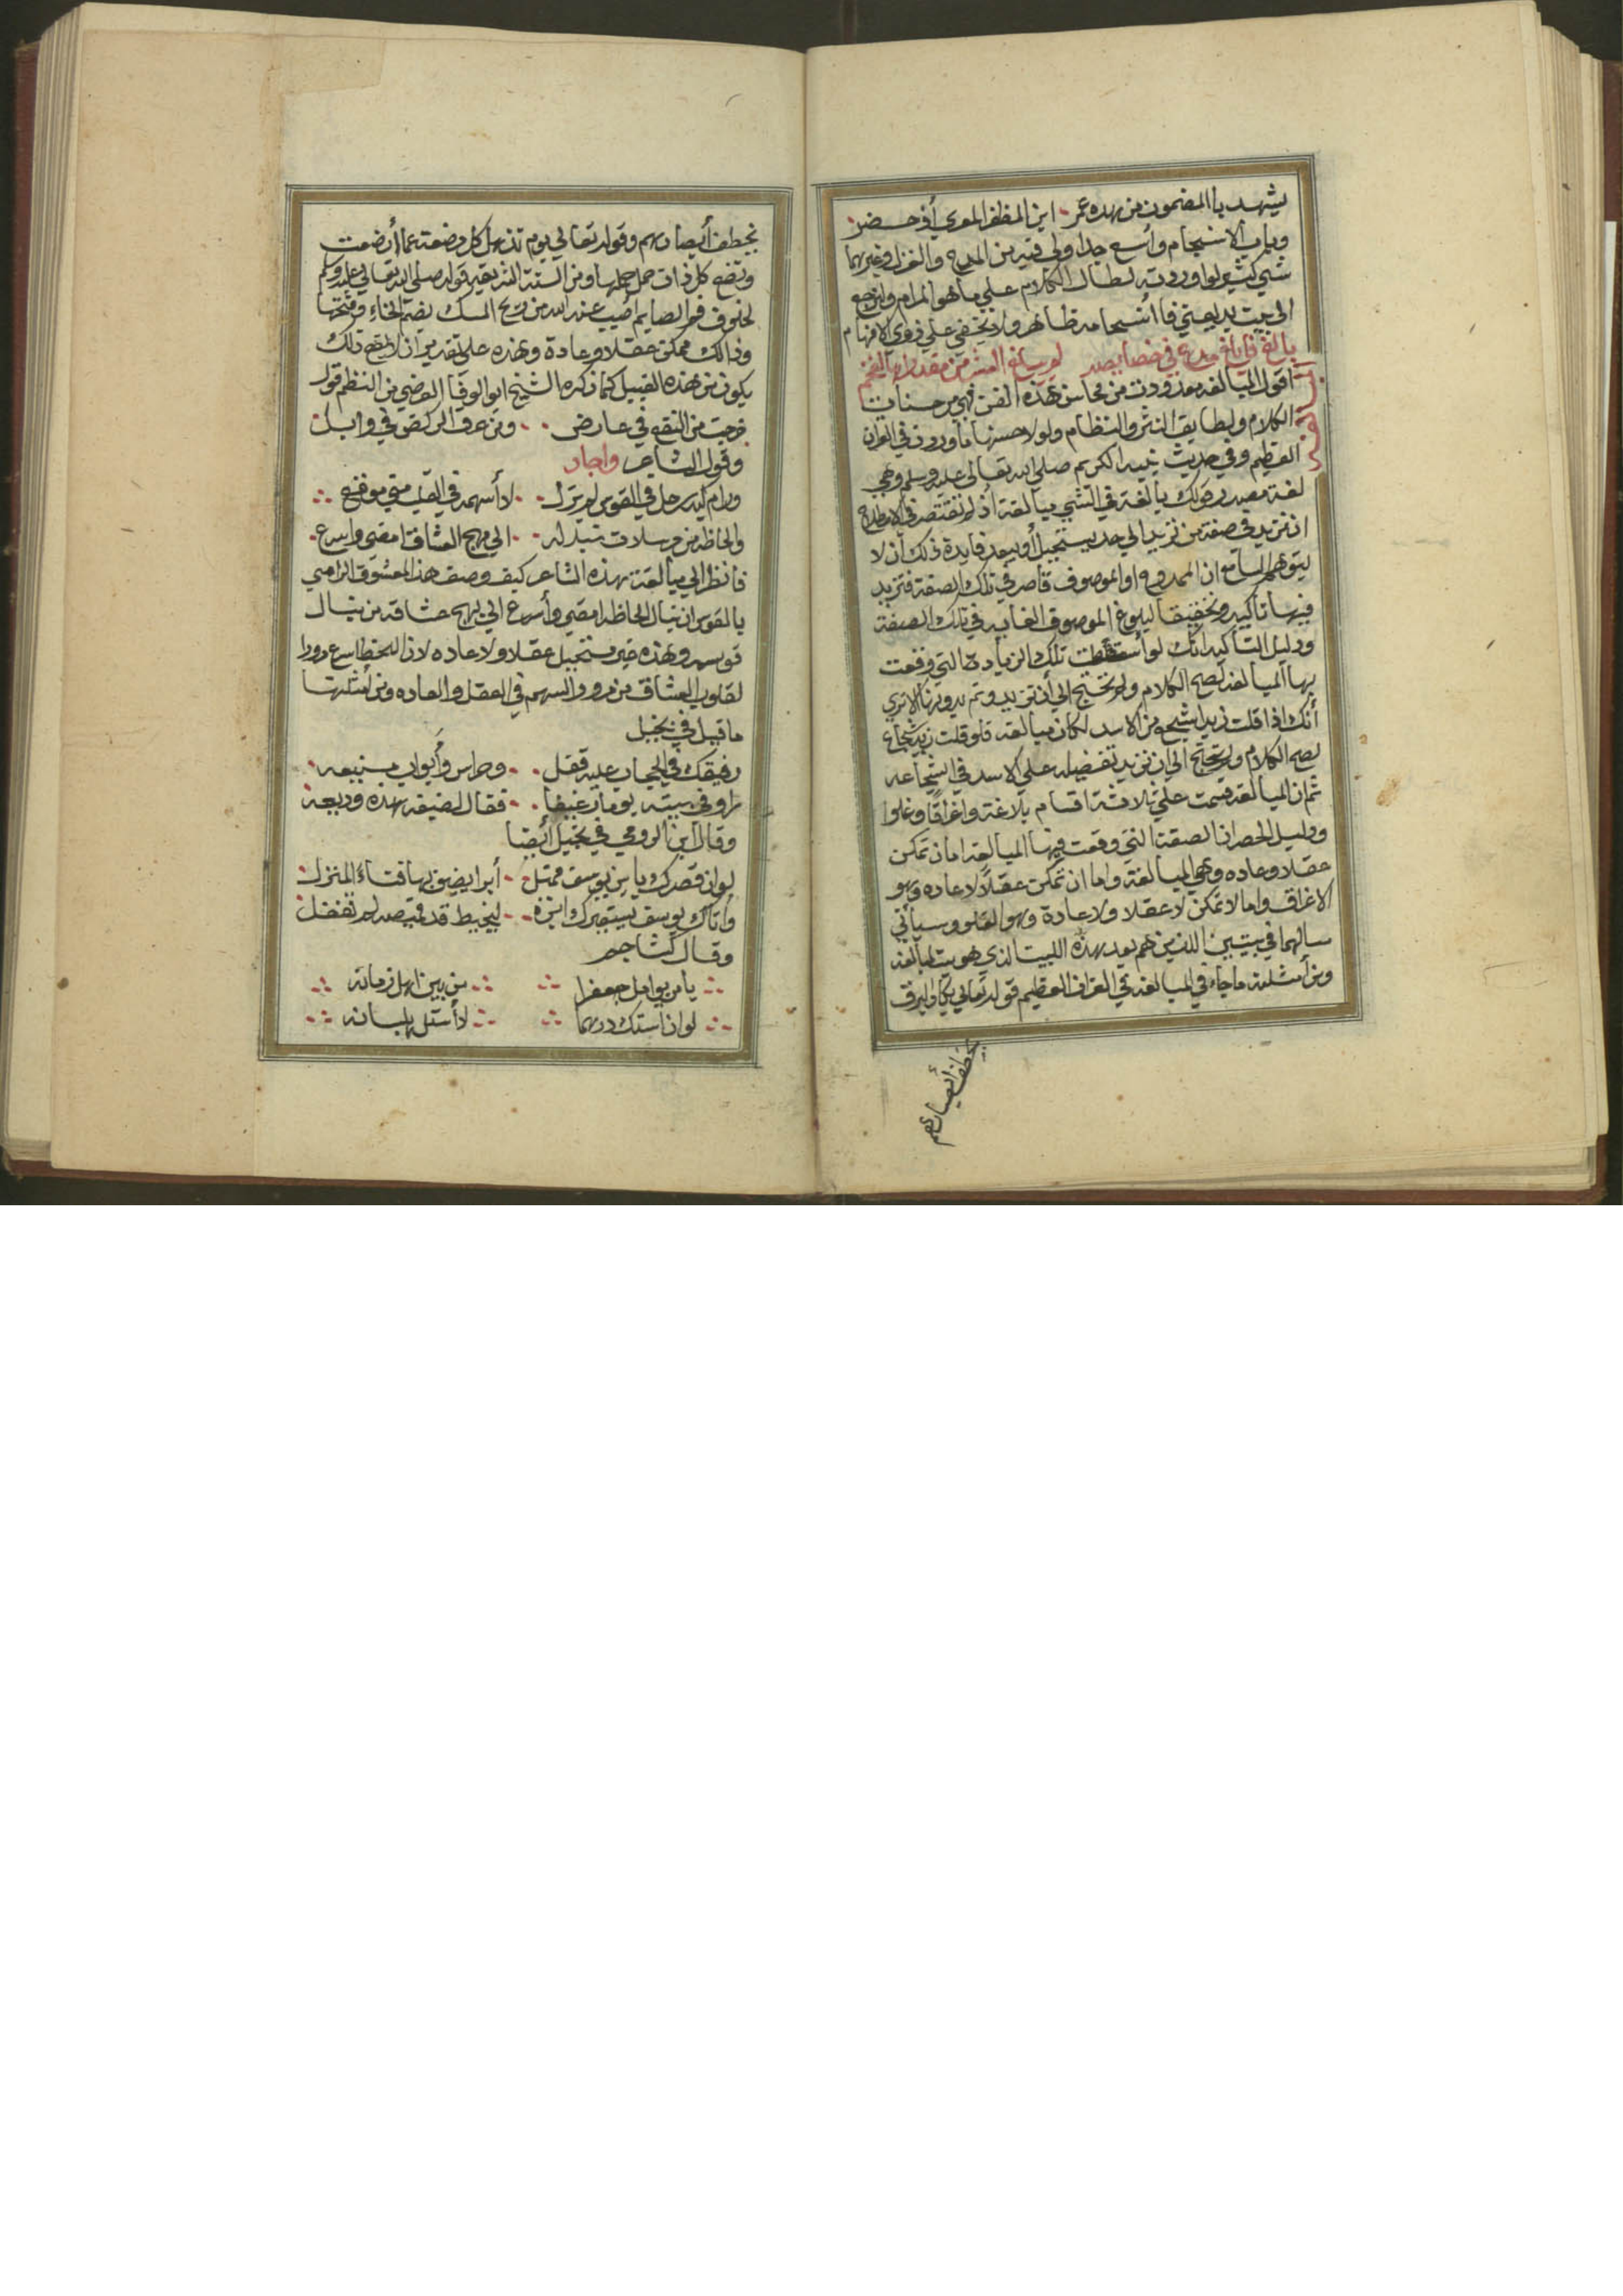 يشهد با المضمون من بهده عمر ابن المظفر المعري أذ حضر
وباب الانسجام واسع جدا ولي فيه من المديح والغزل وغيرهما
شي كثير لو اوردته لطال الكلام علي ما هو المرام وارجع
الي بيت بديعتي فا أنسجامه ظاهر ولا يخفي علي ذوي الافهام
بالغ في خصايصه لم يبلغ العشر من مقدارها الفخم
اقول المبالغه معدودت من محاسن هذه الفن فهي من حسنات
الكلام ولطايف النثر والنظام ولولا حسنها ما وردت في القران
العظيم وفي حديث نبيه الكريم صلي الله تعالي عليه وسلم وهي
لغة مصدر قولك بالغة في الشي مبالغة اذ لم تقتصر في الاصطلاح
ان تزيد في صفة من تزيد الي حد يستحيل أو يبعد فايدة ذلك ان لا
يتوهم السامع ان الممدوح او الموصوف قاصر في تلك الصفة فتزيد
فيها تأكيد وتحقيقا لبلوغ الموصوف الغايه في تلك الصفة
ودليل التأكيد انك لو أسقطت تلك الزيادة التي وقعت
بها المبالغه لصح الكلام ولم تحتج الي أن تزيد وتم بدونها الا تري
أنك اذا قلت زيد اشجع من الاسد لكان مبالغه فلو قلت زيد شجاع
لصح الكلام ولم تحتج الي ان تزيد تفضيله علي الاسد في الشجاعه
ثم ان المبالغه قسمت علي ثلاثة اقسام بلاغة واغراقا وغلوا
ودليل الحصر ان الصفة التي وقعت فيها المبالغه اما ان تمكن
عقلا وعاده وهي المبالغة واما ان تمكن عقلا لا عاده وهو
الاغراق واما لا تمكن لا عقلا ولا عادة وهو الغلو وسيأتي
في بيتين اللذين هم بعد بهذه البيت الذي هو بيت المبالغه
ومن أمثلته ما جاء في المبالغه في القران العظيم قوله تعالي يكاد البرق
يخطف أبصارهم
يخطف أبصارهم وقوله تعالي يوم تذهل كل مرضعة عما أرضعت
وتضع كل ذات حمل حملها ومن السنة الشريفه قوله صلي الله تعالي عليه وسلم
لخلوف فم الصايم اطيب عند الله من ريح المسك بضم الخاء وفتحها
وذالك ممكن عقلا وعادة وهذه علي تقدير ان
يكون من هذه القبيل كما ذكره الشيخ ابو الوفا العرضي من النظم قول
خرجت من النقع في عارض ومن عرق الركض في وابل
وقول الشاعر واجاد
ورام له رجل في القوس لم يزل لا أسهمه في القلب موقع
والحاظه من مرسلات نباله الي مهج العشاق امضي واسرع
فانظر الي مبالغة بهذه الشاعر كيف وصف هذا المعشوق الرامي
بالقوس ان نبال الحاظه امضي وأسرع الي مهج عشاقه من نبال
قوسه وهذه غير مستحيل عقلا ولا عاده لان اللحظ اسرع مرورا
لقلوب العشاق من مرور السهم في العقل والعاده ومن أمثلتها
ما قيل في بخيل
رغيفك في الحجاب عليه قفل وحراس وأبواب منيعه
راوفي بيته يوما رغيفا فقال لضيفه هذه وديعة
وقال ابن الرومي في بخيل أيضا
لو ان قصرك يا بن يوسف ممتل أبرا يضيق بها فناء المنزل
وأتاك يوسف يستعيرك ابرة ليخيط قد قميصه لم تفعل
وقال كشاجم
يا من يوامل جعفرا من بين اهل زمانه
لو ان استك درهما لا أستله بلسانه